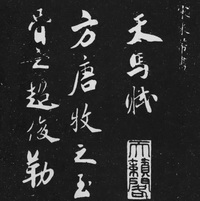 宋米芾書
天馬賦
方唐牧之至
骨之超俊勒